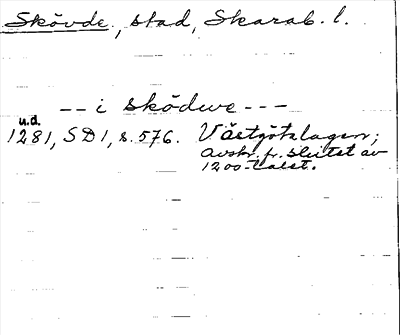 Skövde, stad, Skarab. l.
-- i sködwe ---
u.d.
1281, SD1, s. 576. Västgötalagen;
avskr. fr. slutet av
1200-talet.